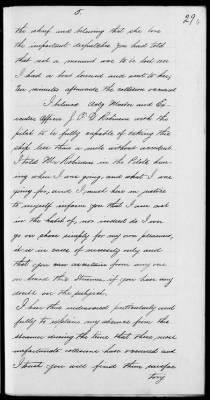 5.
29
the ship and believing that she bore
the important despatches you had told
that not a moment was to be lost in
I had a boat lowered and went to her,
ten minutes afterwards the collision occurred
I believed Actg Master and Ex-
ecutive Officer J. P. Robinson with the
pilot to be fully capable of taking this
ship less than a mile without accident.
I told Mr Robinson in the Pilots hear-
ing where I was going, and what I was
going for, and I must here in justice
to myself inform you that I am not
in the habit of, nor indeed do I ever
go on shore simply for my own pleasure,
it is in cases of necessity only and
that you can ascertain from any one
on board this Steamer, if you have any
doubt on the subject.
I have thus endeavored particularly and
fully to explain my absence from this
steamer during the time that these most
unfortunate collisions have occurred and
I trust you will find them satisfac
tory